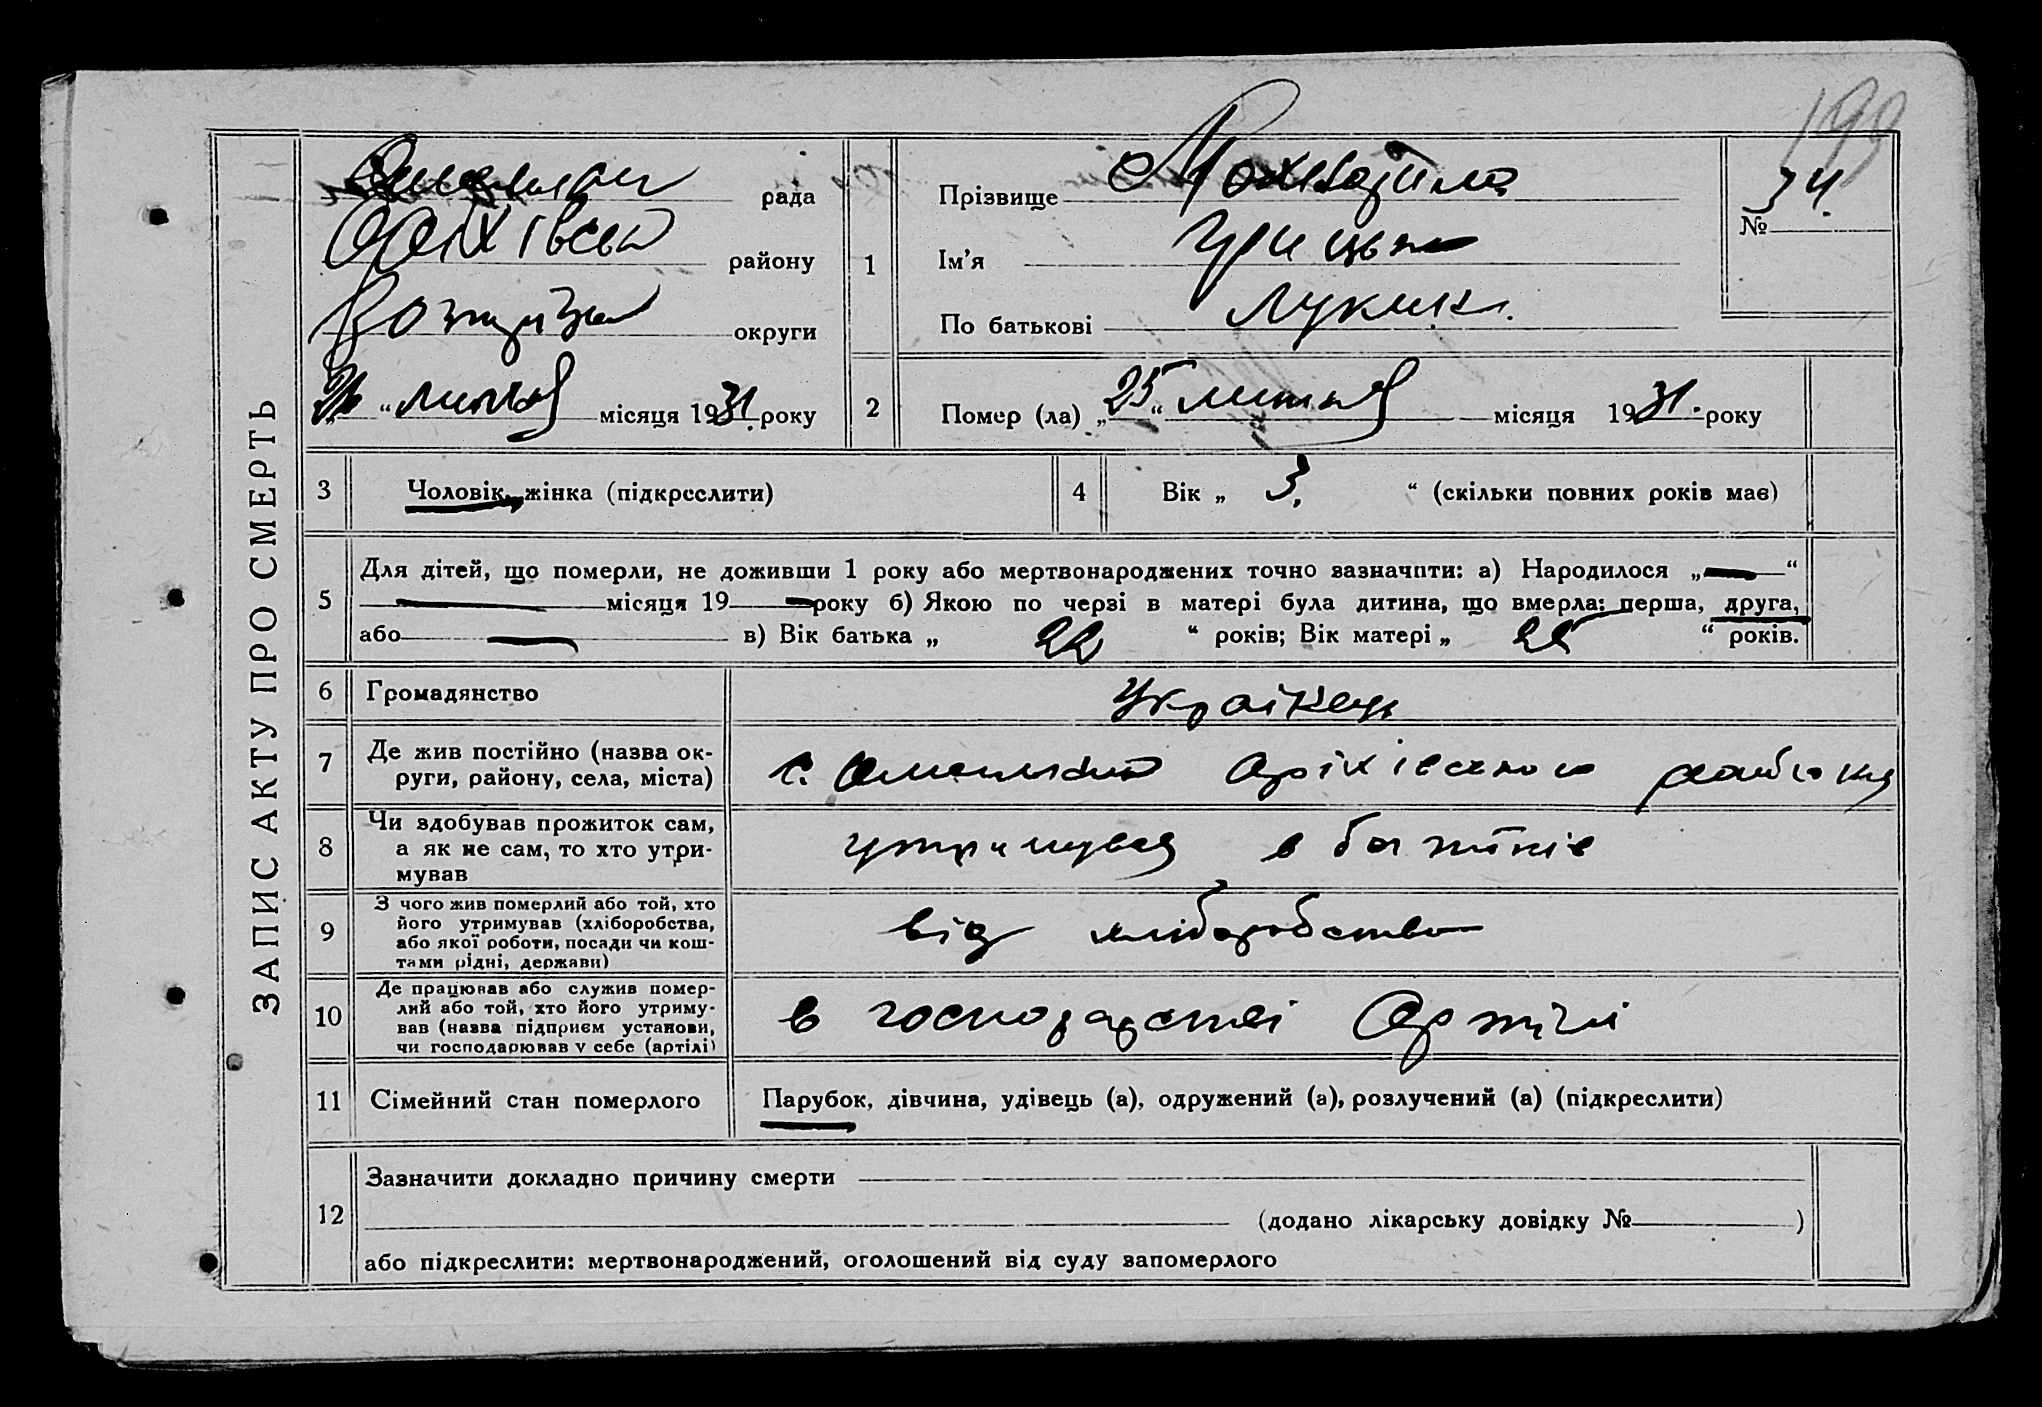 ЗАПИС АКТУ ПРО СМЕРТЬ
199
рада
Оріхівськ району
округи
" місяця 1931 року
1
Прізвище
Ім'я Грицько
По батькові Лукич.
№ 74.
2
Помер (ла) „25“ липня місяця 1931. року
3
Чоловік, жінка (підкреслити)
4
Вік „ 3. “ (скільки повних років мав)
5
Для дітей, що померли, не доживши 1 року або мертвонароджених точно зазначити: а) Народилося „—“
— місяця 19— року б) Якою по черзі в матері була дитина, що вмерла: перша, друга,
або — в) Вік батька „ 22 “ років; Вік матері „ 22 “ років.
6
Громадянство
Українець
7
Де жив постійно (назва ок-
руги, району, села, міста)
с. Омельник Оріхівського району
8
Чи здобував прожиток сам,
а як не сам, то хто утри-
мував
утримував батьків
9
З чого жив померлий або той, хто
його утримував (хліборобства,
або якої роботи, посади чи кош-
тами рідні, держави)
від хліборобства
10
Де працював або служив помер-
лий або той, хто його утриму-
вав (назва підприєм установи,
чи господарював у себе (артілі)
в господарстві Артілі
11
Сімейний стан померлого
Парубок, дівчина, удівець (а), одружений (а), розлучений (а) (підкреслити)
12
Зазначити докладно причину смерти
(додано лікарську довідку № )
або підкреслити: мертвонароджений, оголошений від суду запомерлого